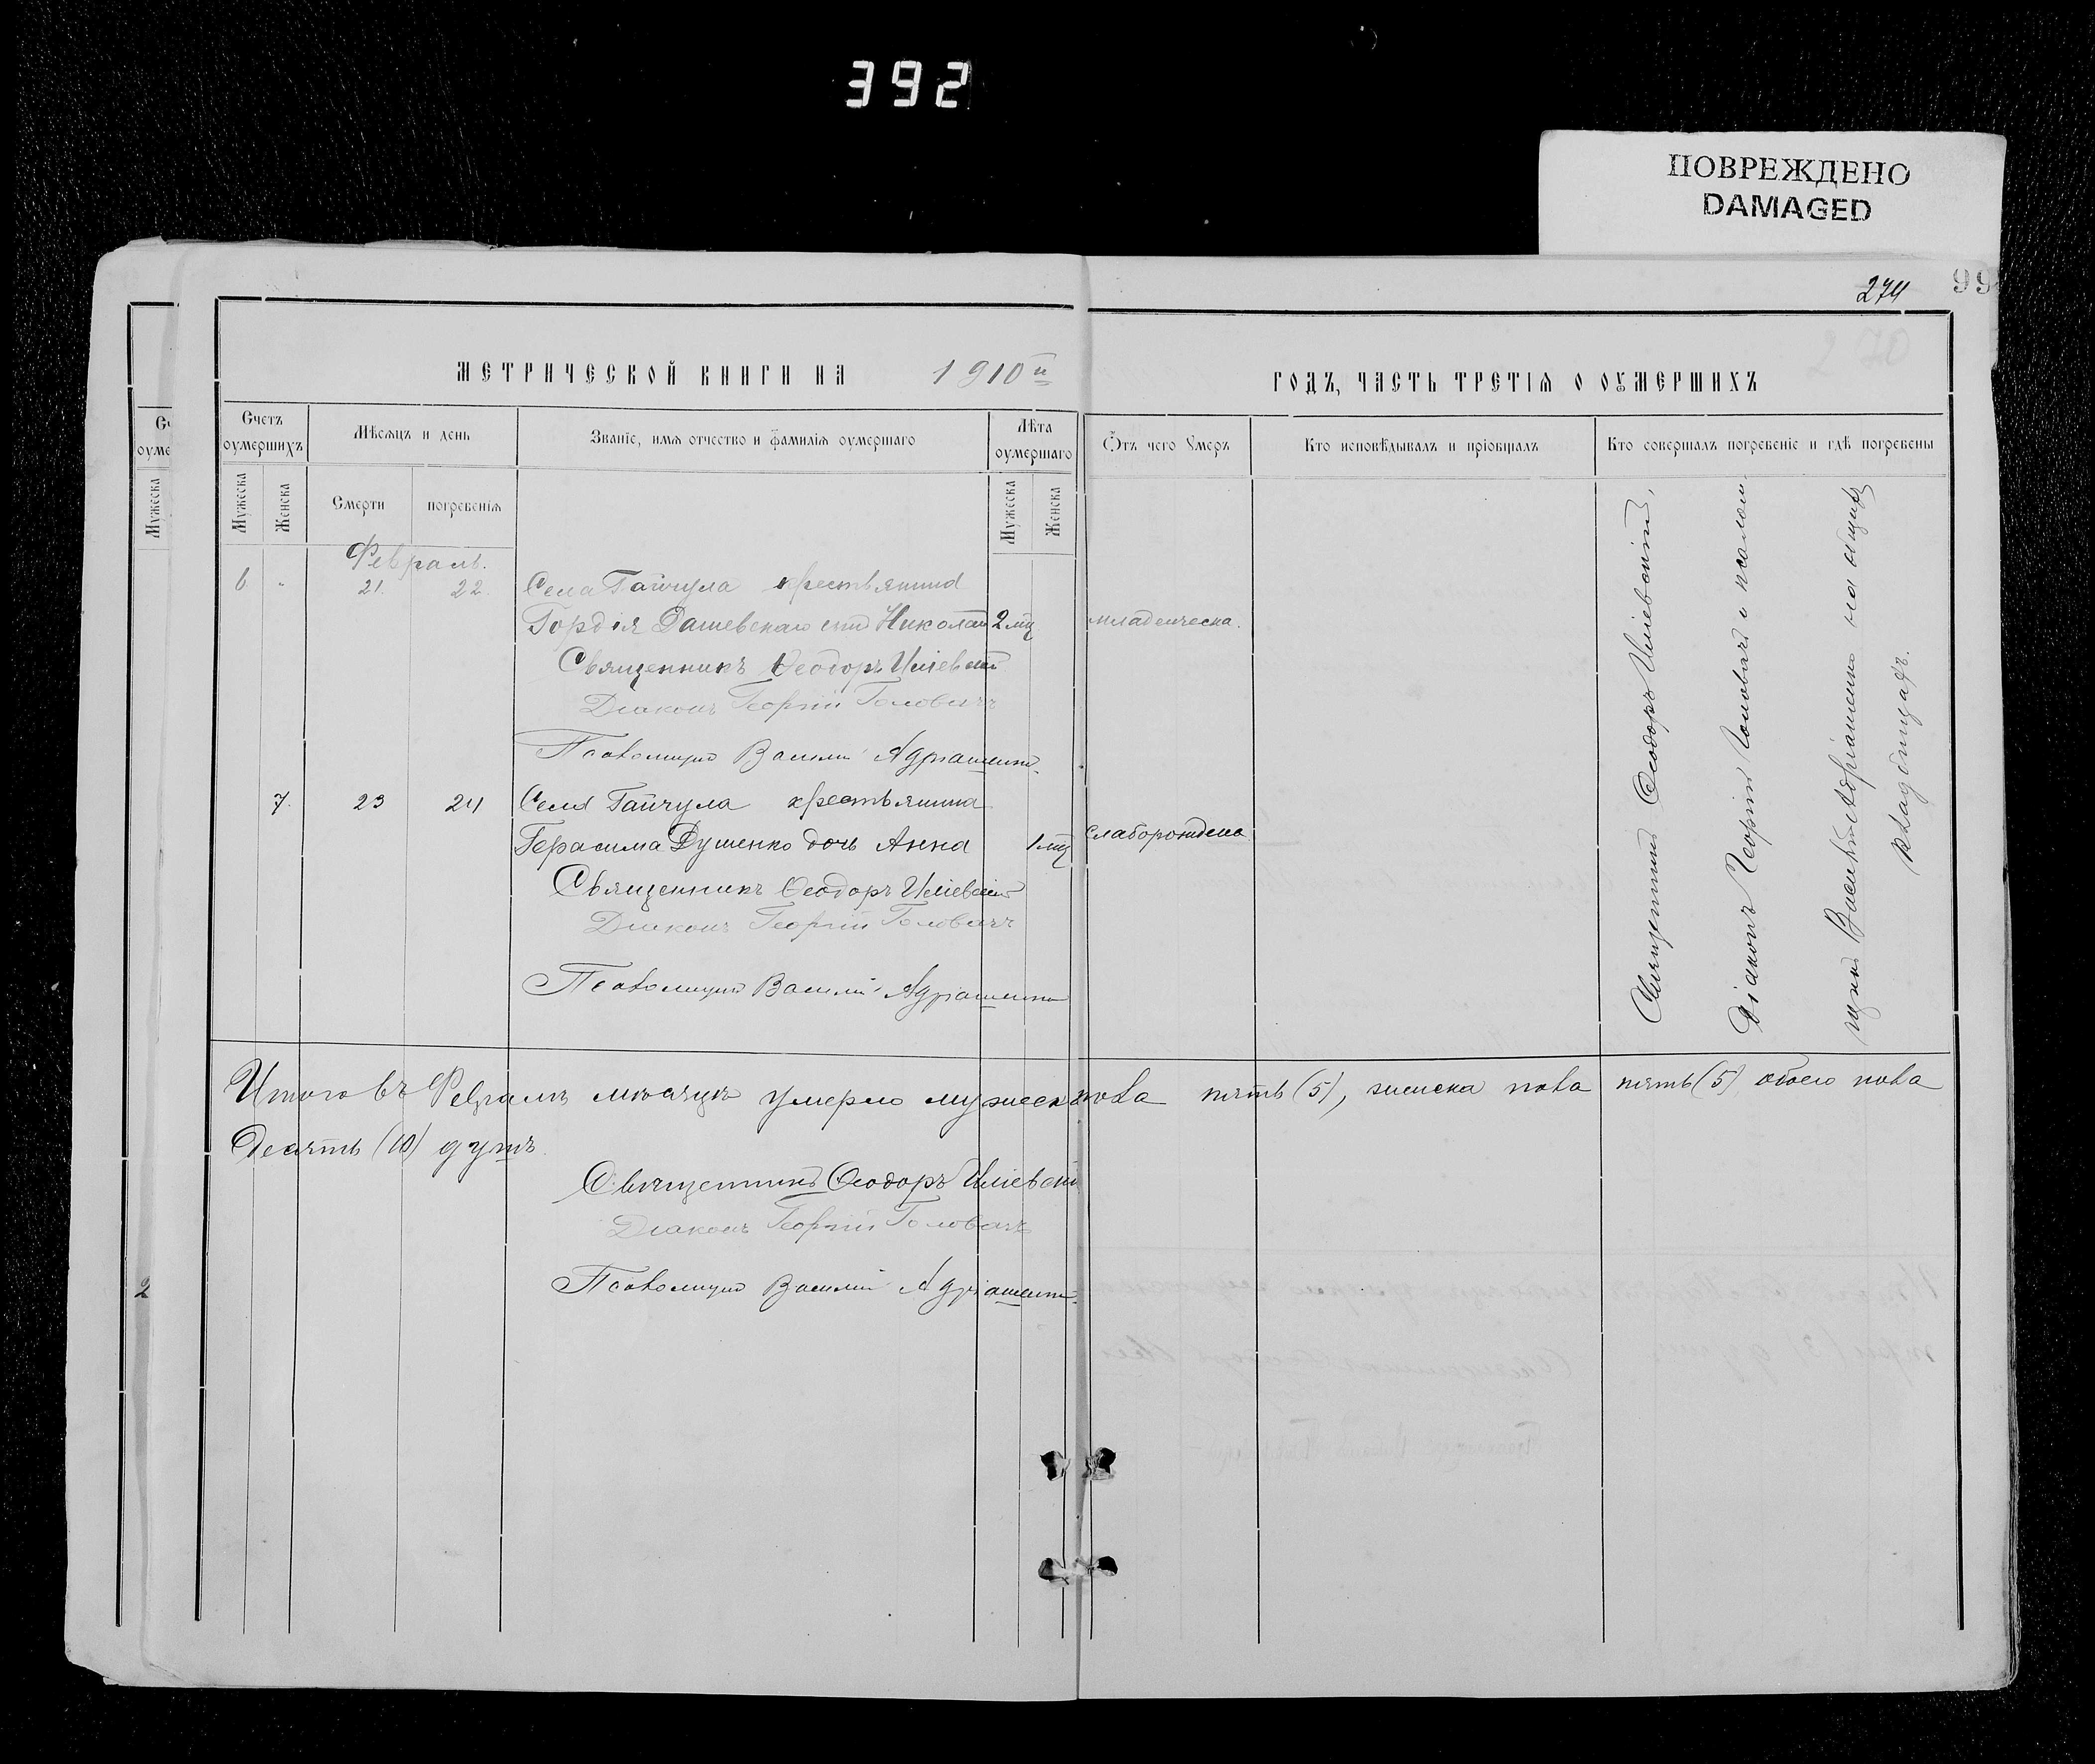 392
ПОВРЕЖДЕНО
DAMAGED
99
274
270
МЕТРИЧЕСКОЙ КНИГИ НА 1910й ГОДЪ, ЧАСТЬ ТРЕТІЯ О ОУМЕРШИХЪ
Счетъ оумершихъ
Мѣсяцъ и день
Званіе, имя отчество и фамилія оумершаго
Лѣта оумершаго
Отъ чего Умеръ
Кто исповѣдывалъ и пріобщалъ
Кто совершалъ погребеніе и гдѣ погребены
Мужеска
Женска
Смерти
погребенія
Мужеска
Женска
Мужеска
Февраль.
6 " 21. 22. Села Гайчула крестьянина
Гордія Дашевскаго сынъ Николай 2 мц младенческа.
Священникъ Ѳеодоръ Иліевскій
Діаконъ Георгій Головачъ
Псаломщикъ Василій Адріашенко.
7. 23 24 Села Гайчула крестьянина
Герасима Душенко дочь Анна 1 мц слаборождена
Священникъ Ѳеодоръ Иліевскій
Діаконъ Георгій Головачъ
Псаломщикъ Василій Адріашенко
Священникъ Ѳеодоръ Иліевскій,
Діаконъ Георгій Головачъ и псалом
щикъ Василій Адріашенко на общемъ
кладбищѣ.
Итого въ Февралѣ мѣсяцѣ умерло мужеска пола пять (5), женска пола пять (5) обоего пола
десять (10) душъ
Священникъ Ѳеодоръ Иліевскій
Діаконъ Георгій Головачъ
Псаломщикъ Василій Адріашенко
2